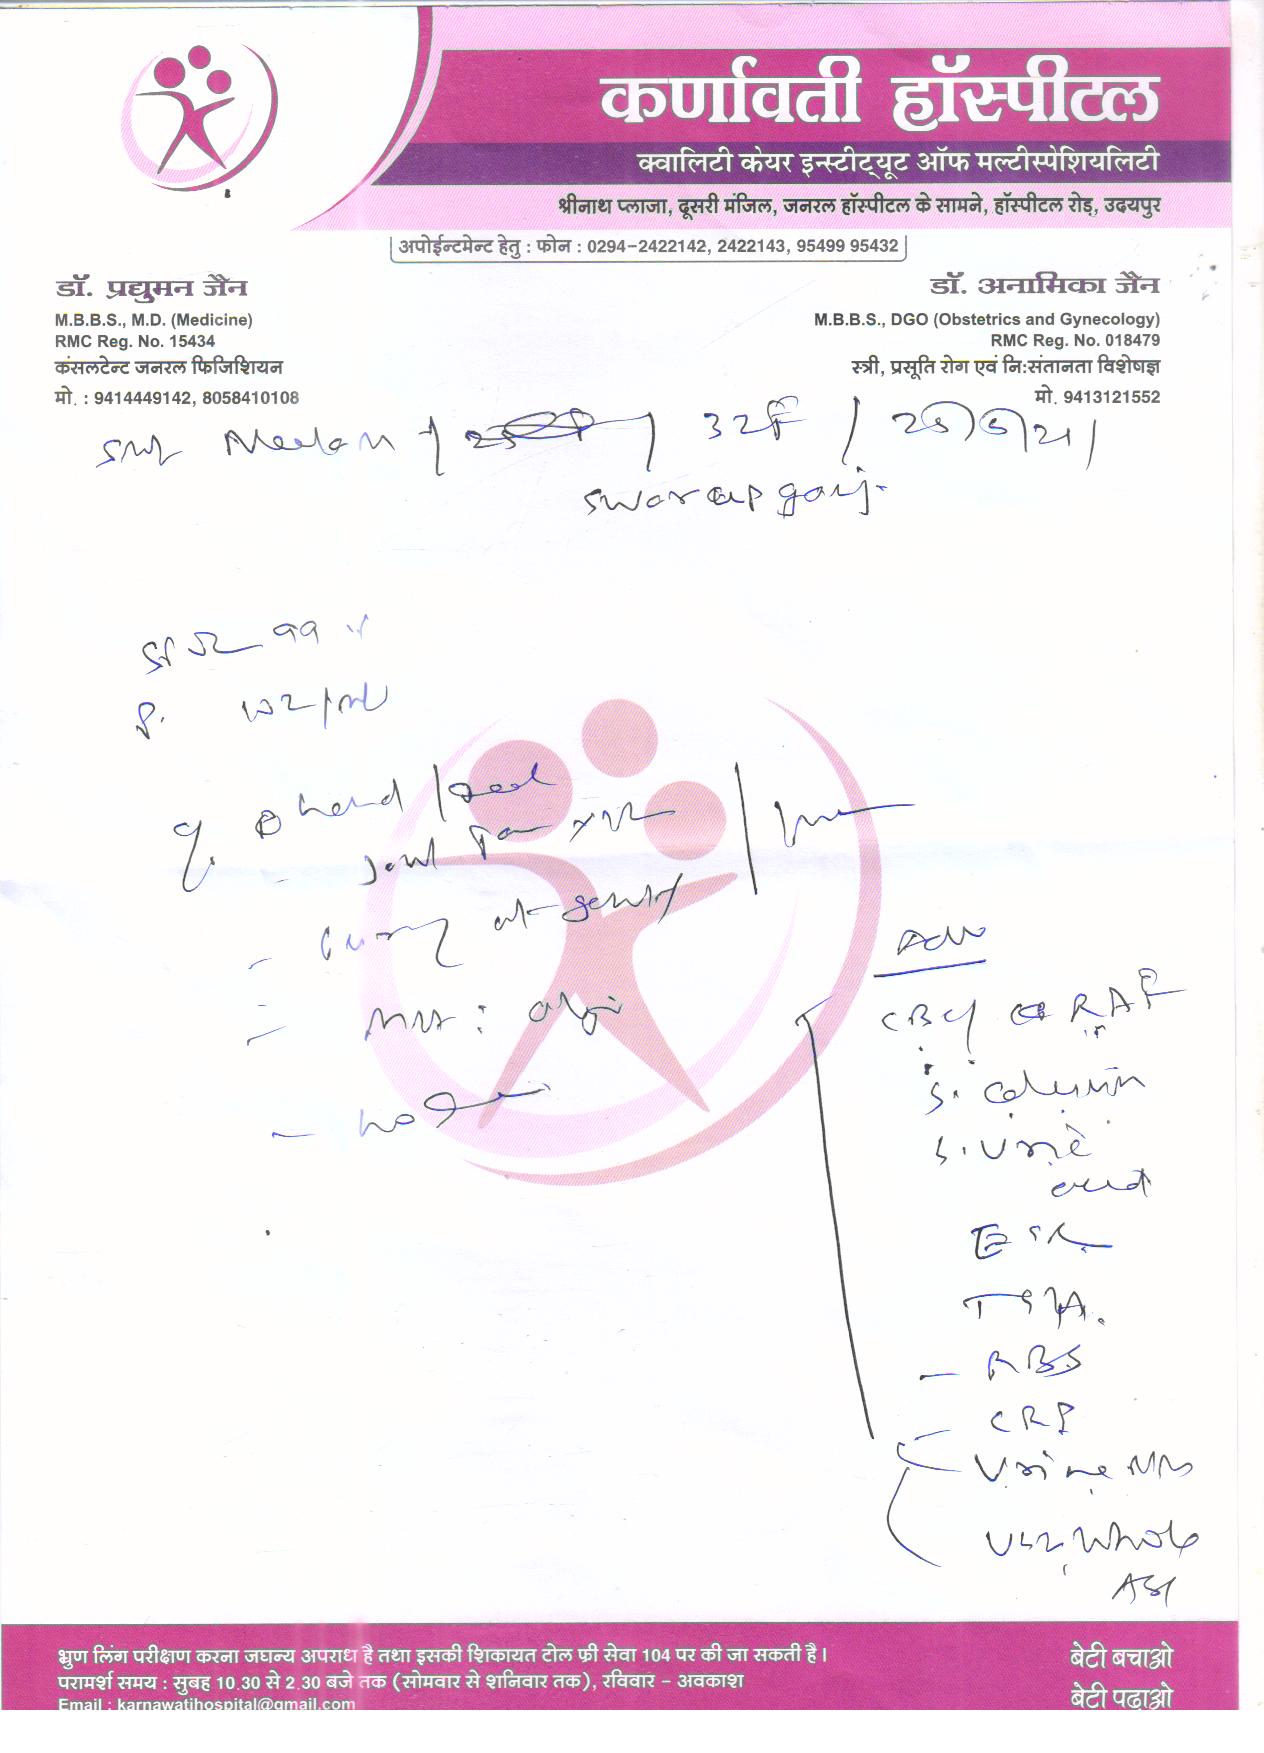 कर्णावती हॉस्पीटल
क्वालिटी केयर इन्स्टीट्यूट ऑफ मल्टीस्पेशियलिटी
श्रीनाथ प्लाजा, दूसरी मंजिल, जनरल हॉस्पीटल के सामने, हॉस्पीटल रोड़, उदयपुर
अपोईन्टमेन्ट हेतु : फोन : 0294-2422142, 2422143, 95499 95432
डॉ. प्रद्युमन जैन
M.B.B.S., M.D. (Medicine)
RMC Reg. No. 15434
कंसलटेन्ट जनरल फिजिशियन
मो. : 9414449142, 8058410108
डॉ. अनामिका जैन
M.B.B.S., DGO (Obstetrics and Gynecology)
RMC Reg. No. 018479
स्त्री, प्रसूति रोग एवं नि:संतानता विशेषज्ञ
मो. 9413121552
Smt Neelam / 32 F / 25/5/21/
Swaroopganj.
99
P.
hand /
Joint Pain
at
Adv
CBC RAF
S. Calcium
S. Uric
acid
ESR
TSH.
- RBS
- CRP
- Urine
USG Whole
Abd
भ्रुण लिंग परीक्षण करना जघन्य अपराध है तथा इसकी शिकायत टोल फ्री सेवा 104 पर की जा सकती है।
परामर्श समय : सुबह 10.30 से 2.30 बजे तक (सोमवार से शनिवार तक), रविवार - अवकाश
Email : karnawatihospital@gmail.com
बेटी बचाओ
बेटी पढ़ाओ